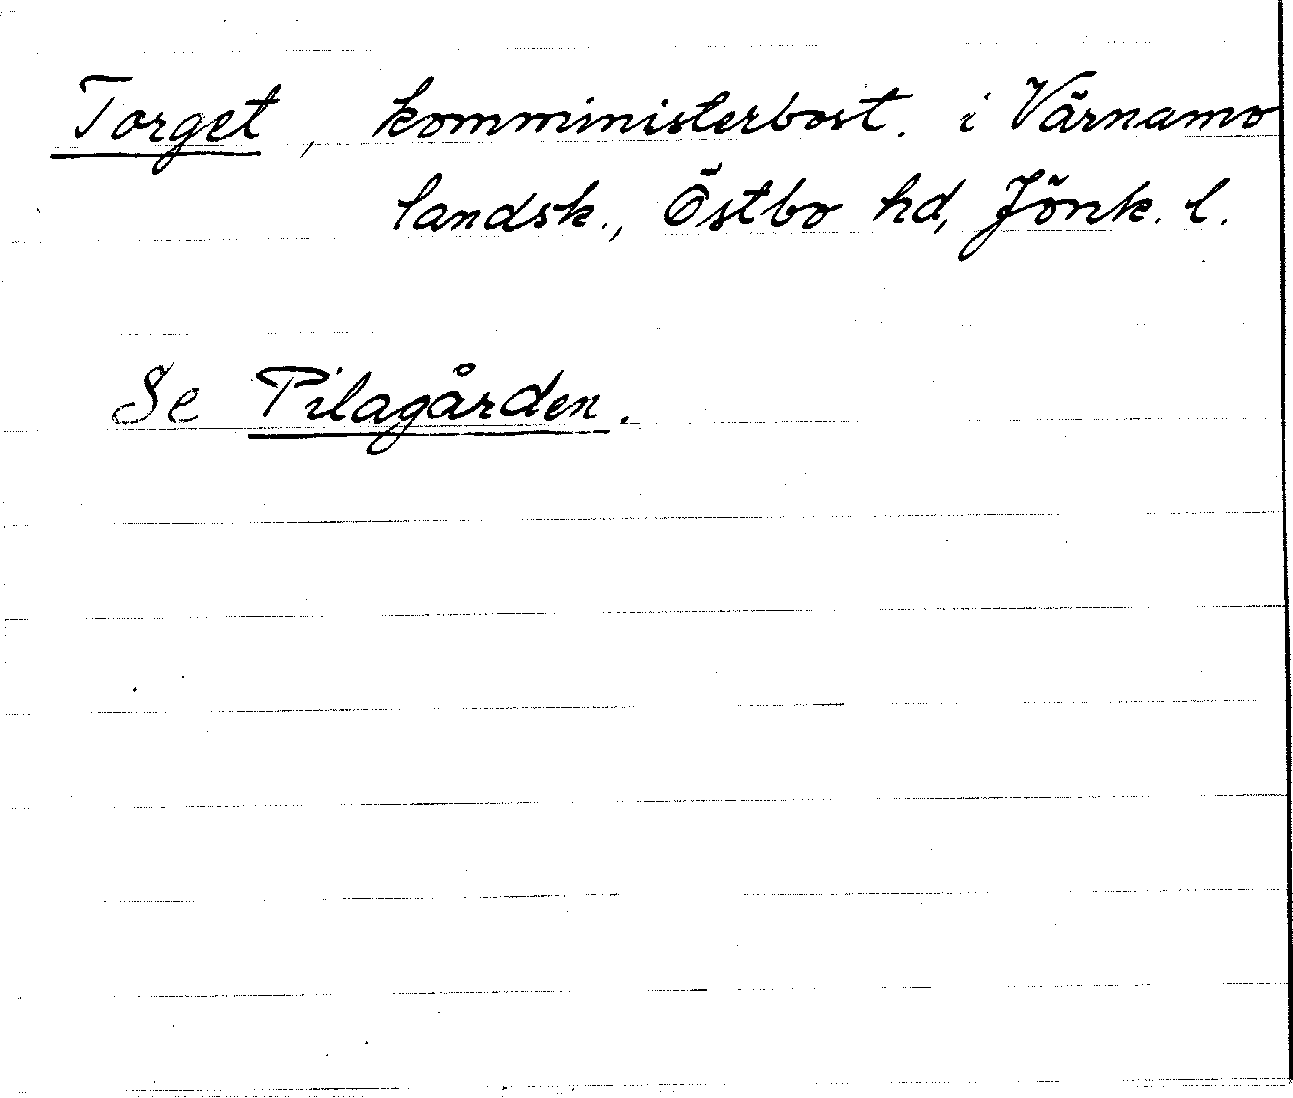 Torget, komministerbost. i Värnamo
landsk., Östbo hd, Jönk. l.
Se Pilagården.